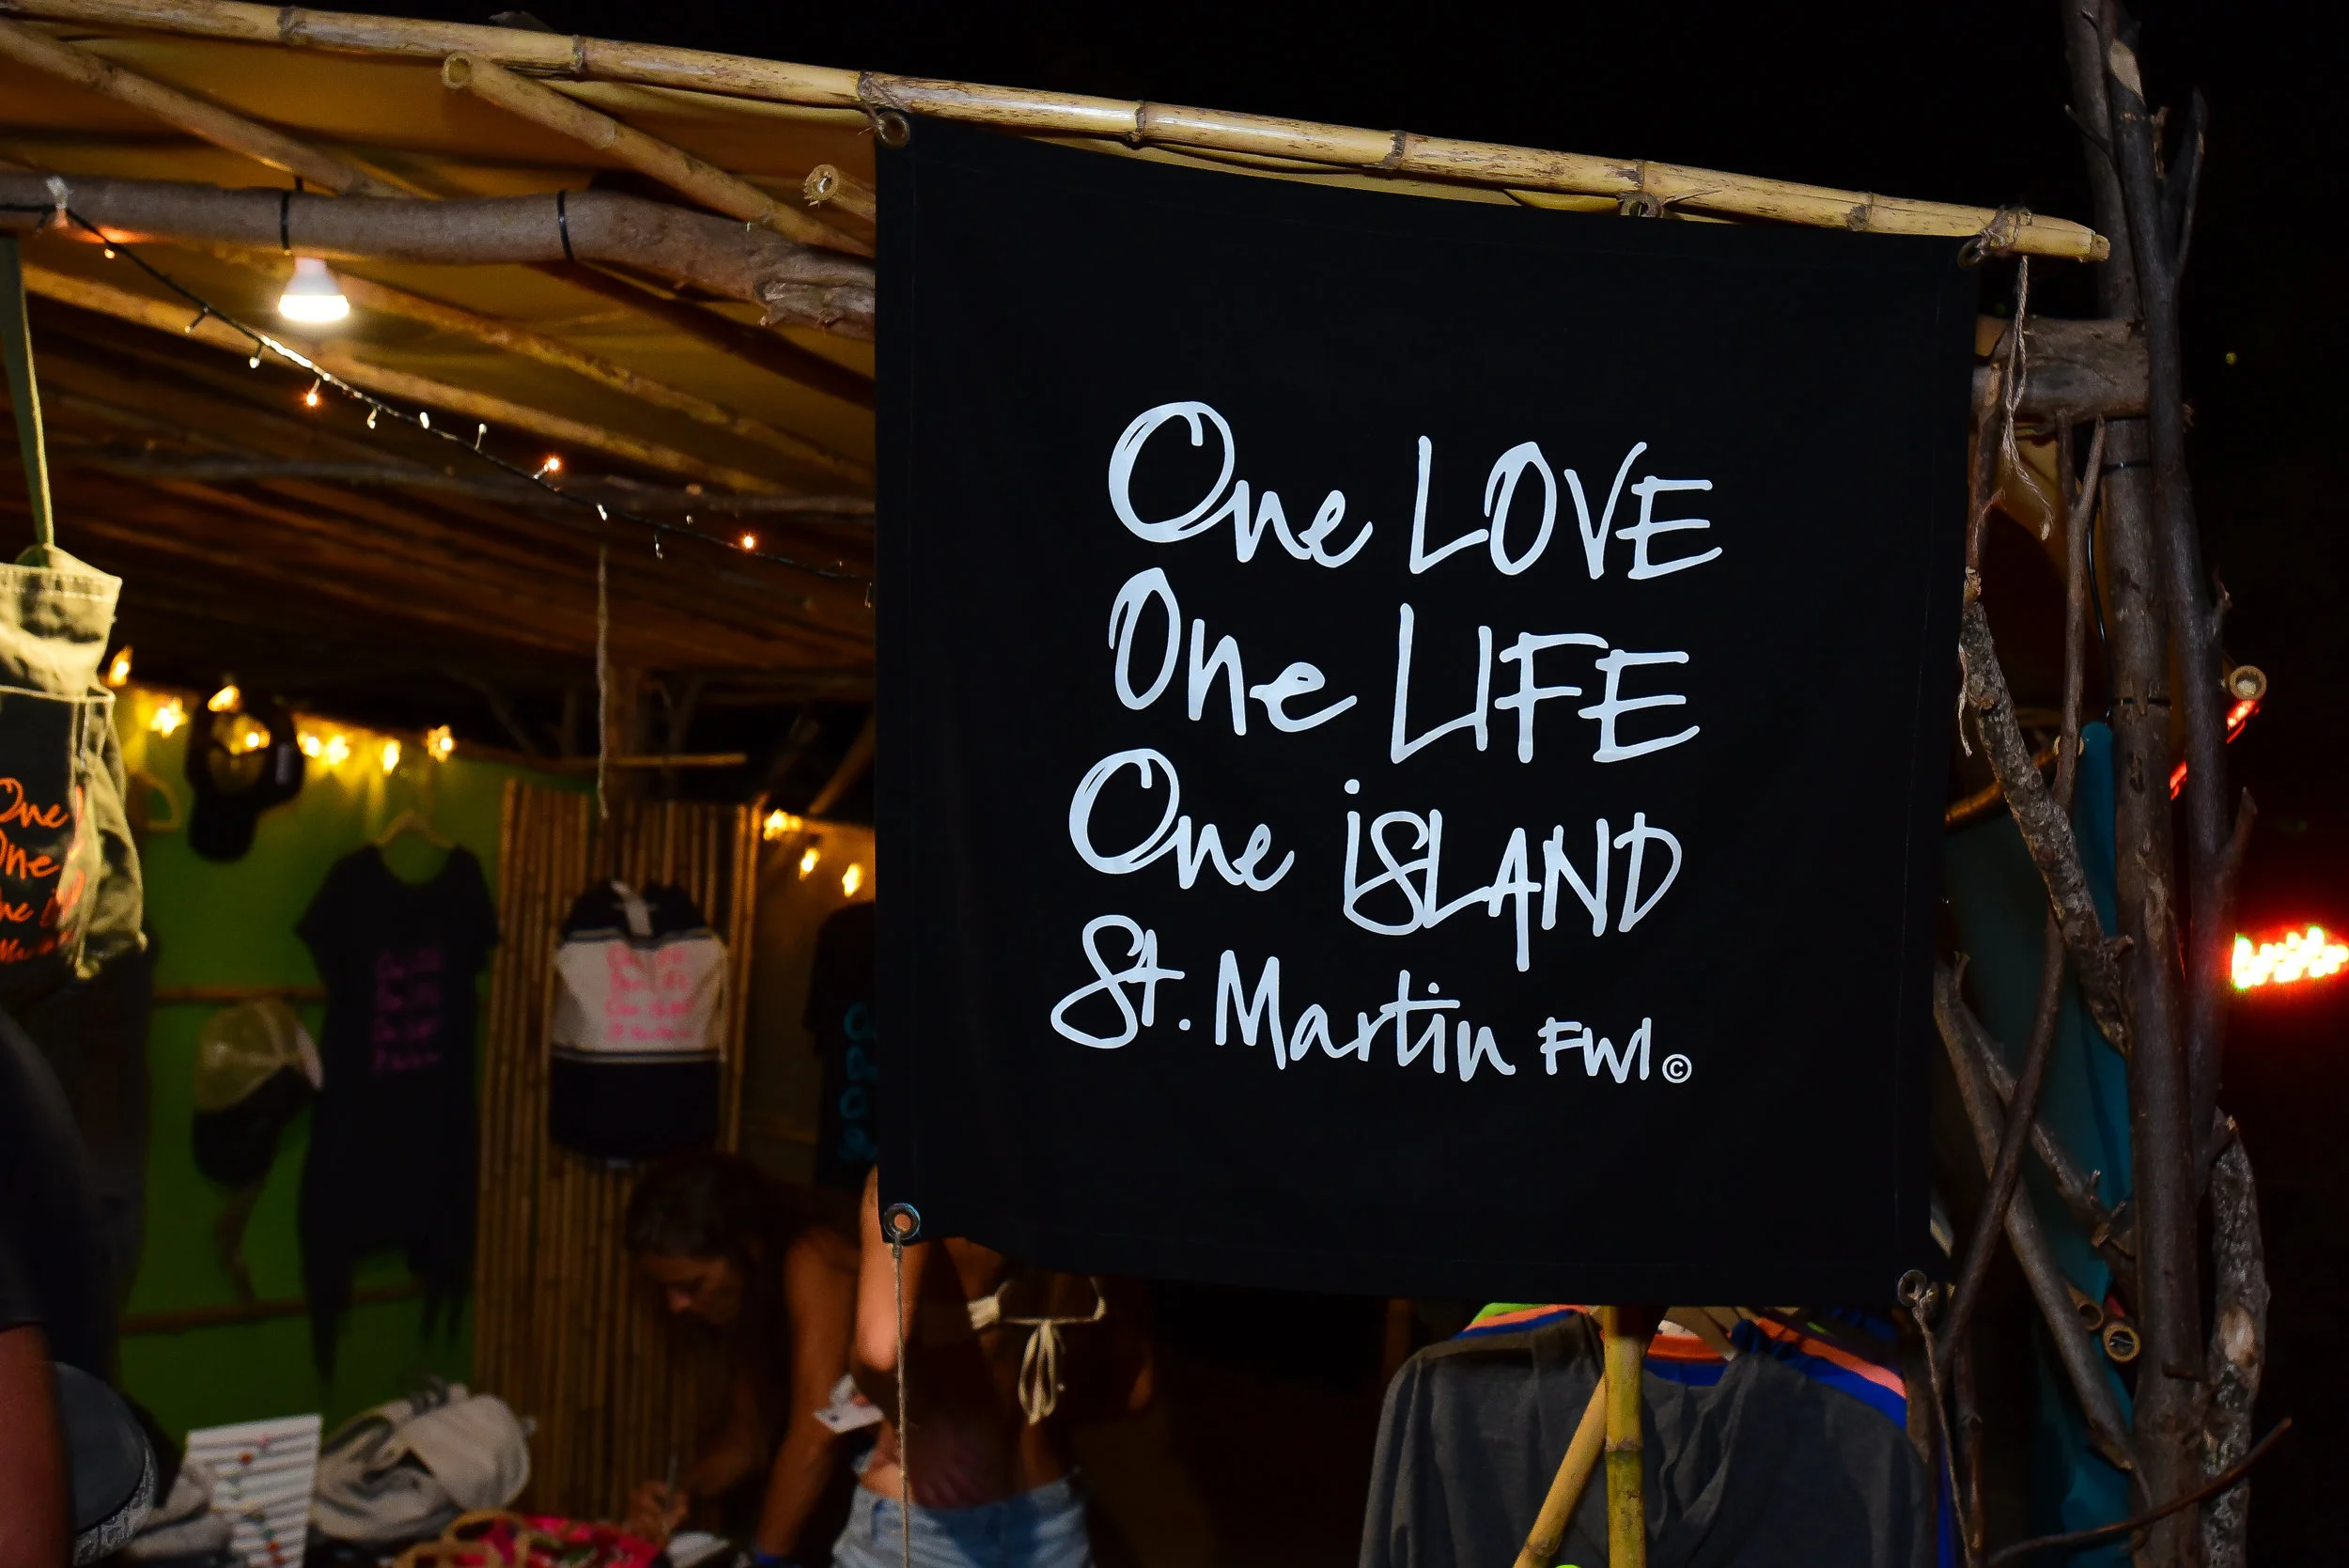 One LOVE
One LIFE
One iSLAND
St. Martin FWI ©
One
One